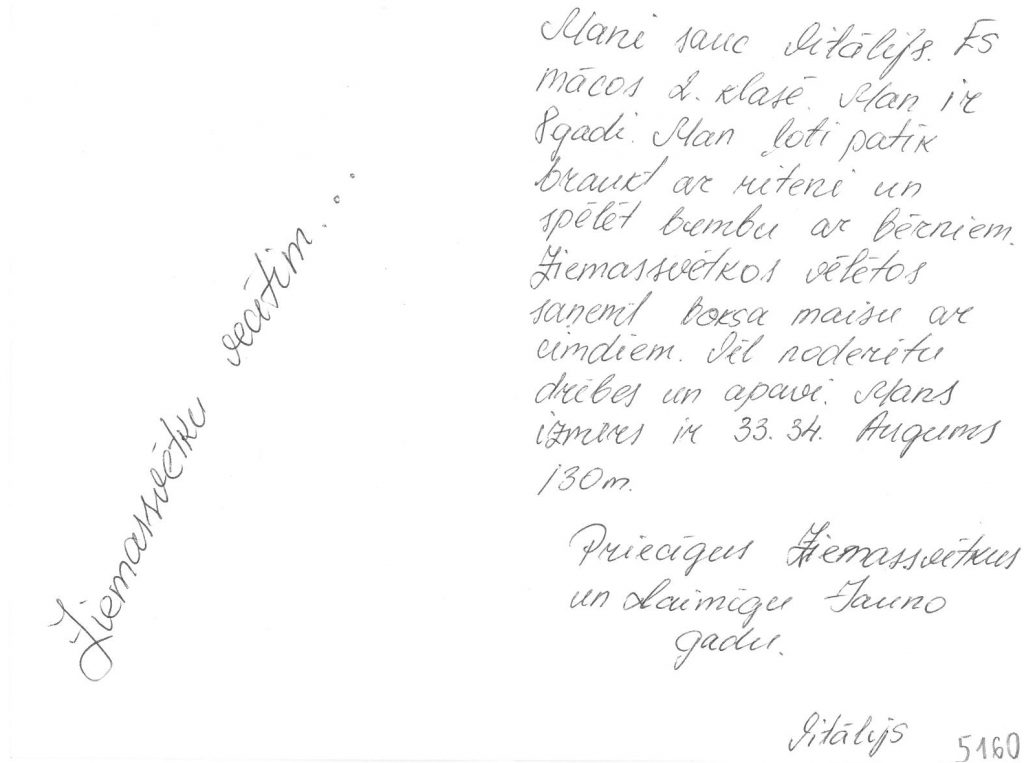 Ziemassvētku vecītim...
Mani sauc Vitālijs. Es
mācos 2. klasē. Man ir
8gadi. Man ļoti patīk
braukt ar riteni un
spēlēt bumbu ar bērniem.
Ziemassvētkos vēlētos
saņemt boksa maisu ar
cimdiem. Vēl noderētu
drēbes un apavi. Mans
izmērs ir 33. 34. Augums
130m.
Priecīgus Ziemassvētkus
un Laimīgu Jauno
gadu.
Vitālijs
5160